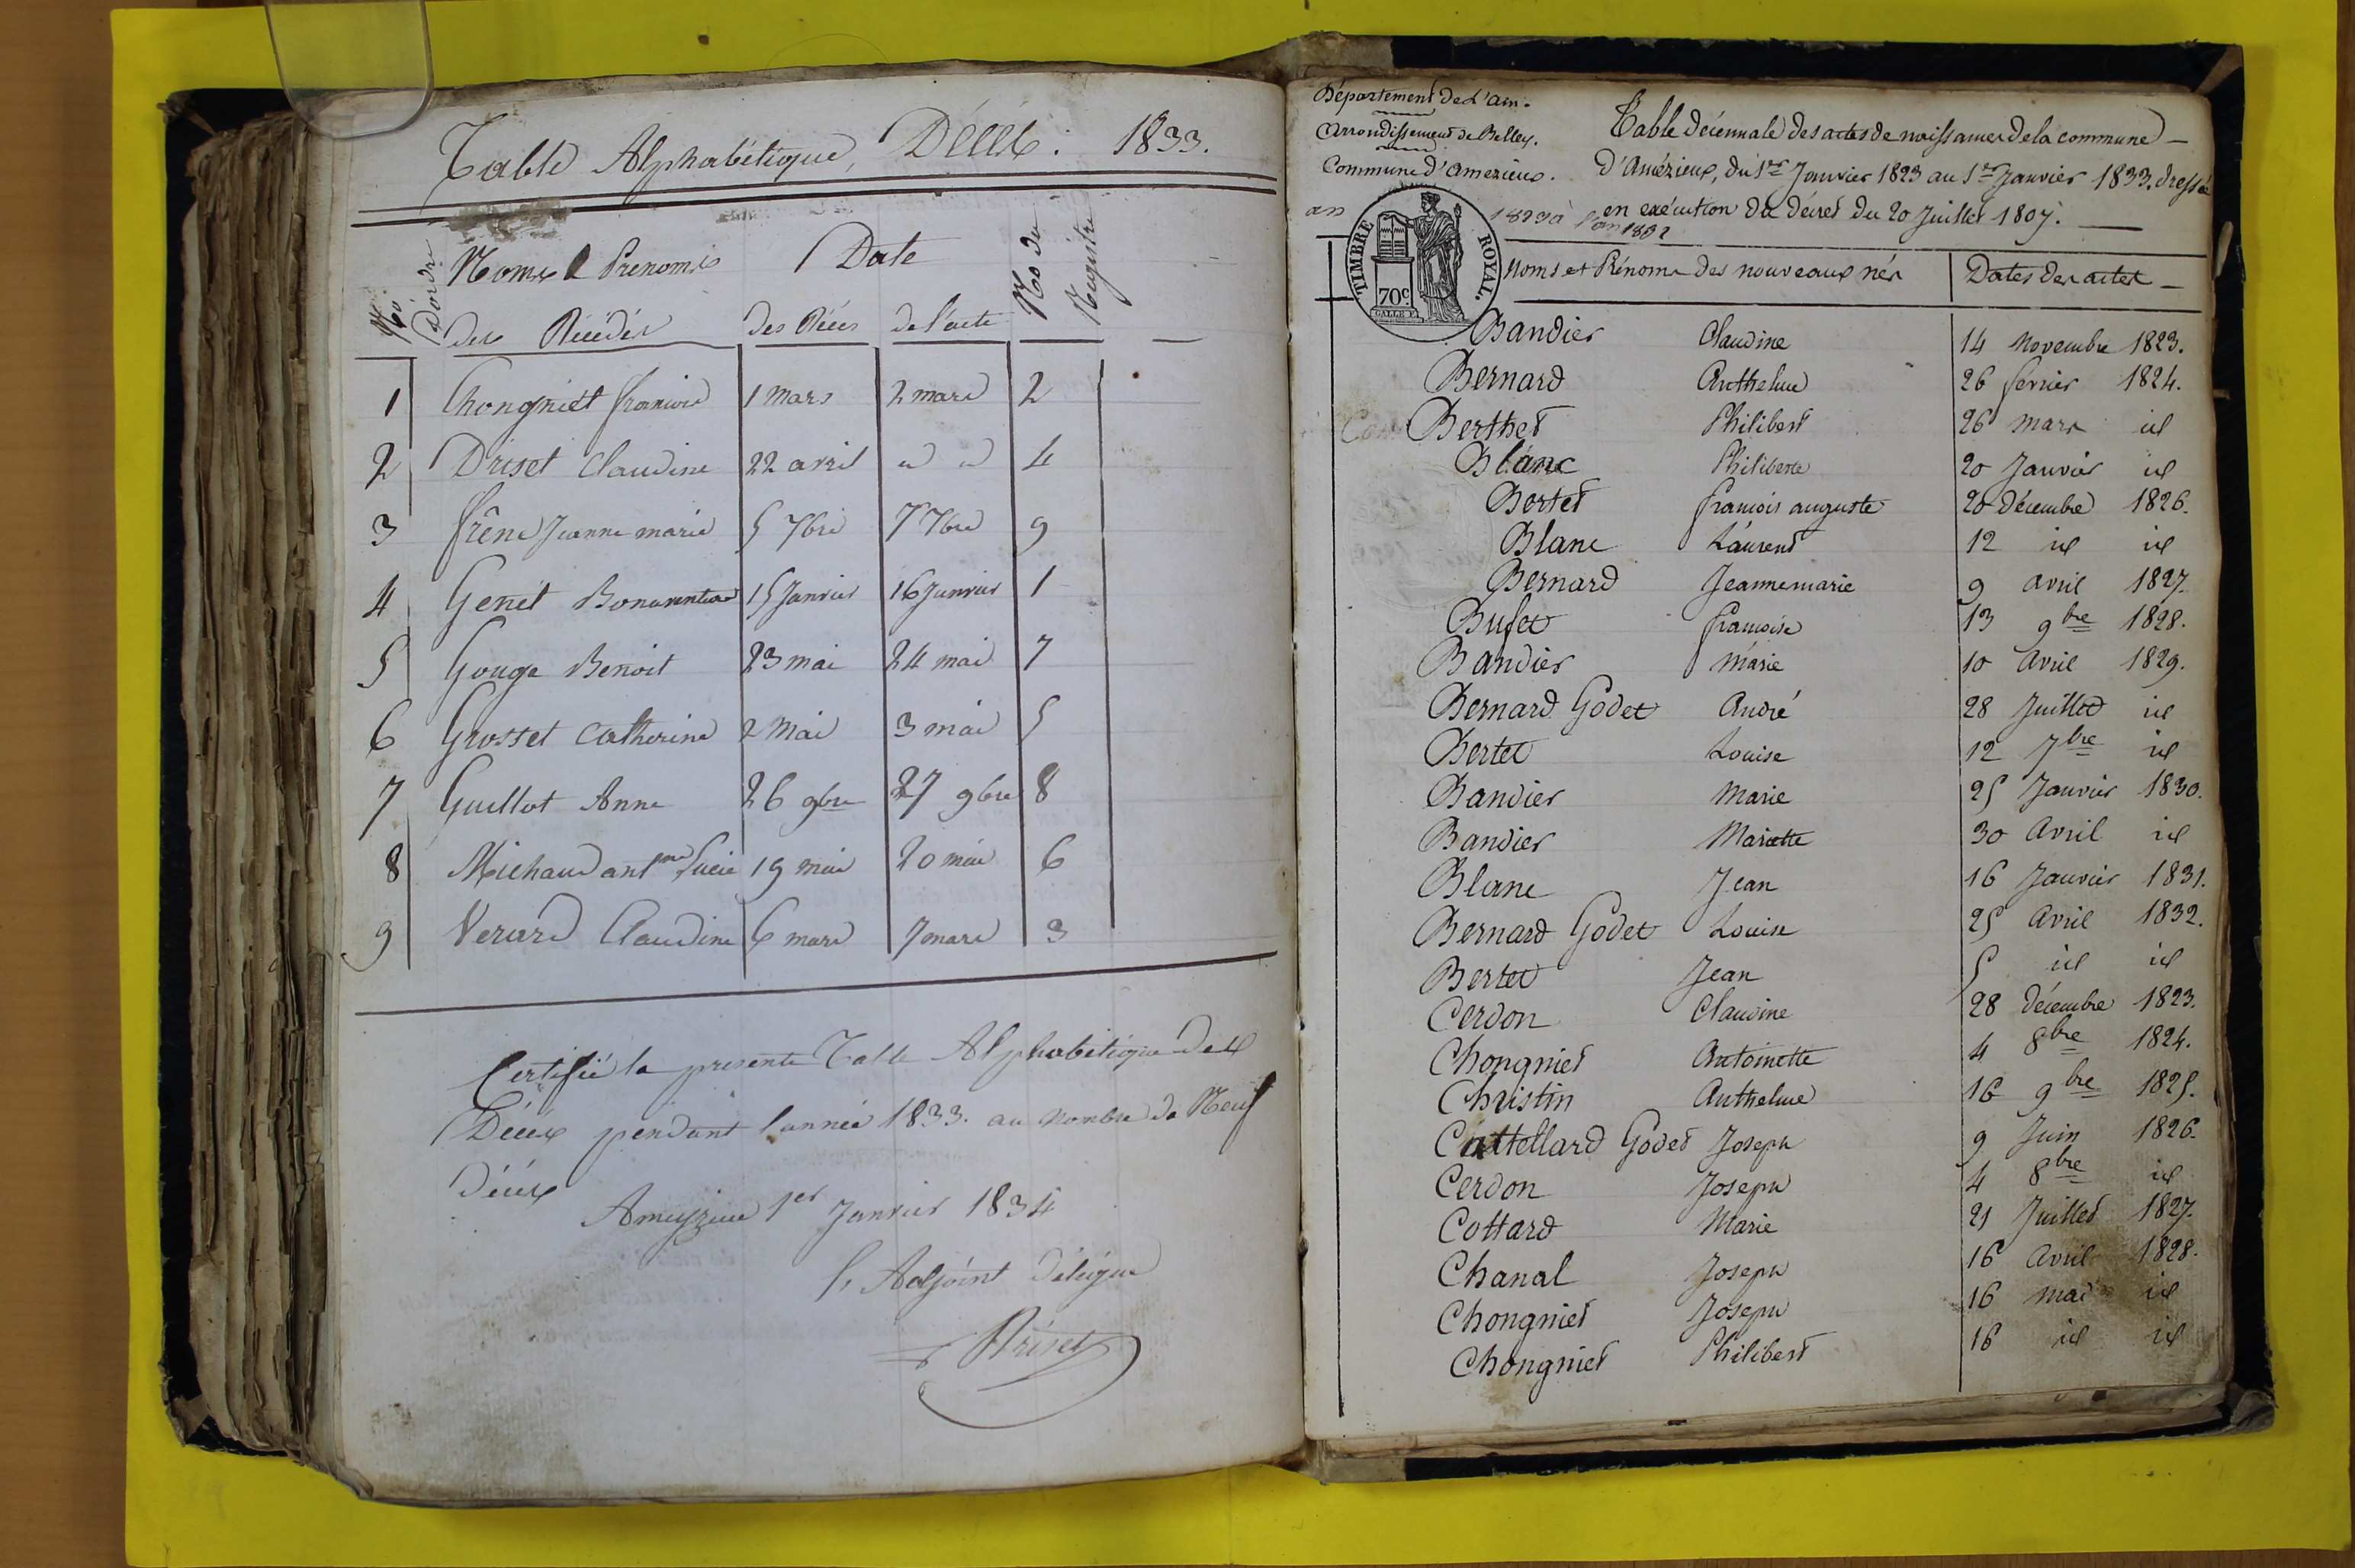 Table Alphabétique, Décès : 1833.
Nos D'ordre
Noms & Prenoms
des Décédés
Date
des Décès
de l'acte
Nos du Registre
1 Chongniet francois 1 mars 2 mars 2
2 Driset Claudine 22 avril id id 4
3 frêne Jeanne marie 5 7bre 7 7bre 9
4 Genet Bonaventure 15 Janvier 16 Janvier 1
5 Gouge Benoit 23 mai 24 mai 7
6 Grosset Catherine 2 Mai 3 mai 5
7 Guillot Anne 26 9bre 27 9bre 8
8 Michaud antne Lucie 19 mai 20 mai 6
9 Verard Claudine 6 mars 7 mars 3
Certifié la presente Table Alphabétique des
Décès pendant l'année 1833. au nombre de Neuf
Décès
Ameyzieu 1er Janvier 1834
L'Adjoint délégué
Driset
Département de L'ain.
Arrondissement de Belley.
Commune d'amezieux.
Table décennale des actes de naissances de la commune
d'Amézieux, du 1er Janvier 1823 au 1er Janvier 1833. dressée
en exécution du décret du 20 Juillet 1807.
an 1823 à l'an 1832
TIMBRE ROYAL.
70c.
Noms et Prénoms des nouveaux nés Dates des actes
Bandier Claudine 14 Novembre 1823.
Bernard Anthelme 26 fevrier 1824.
Berthet Philibert 26 mars id
Blanc Philiberte 20 Janvier id
Bertet francois auguste 20 décembre 1826.
Blanc Laurent 12 id id
Bernard Jeanne marie 9 avril 1827.
Bufet francoise 13 9bre 1828.
Bandier Marie 10 Avril 1829.
Bernard Godet André 28 Juillet id
Bertet Louise 12 7bre id
Bandier Marie 25 Janvier 1830.
Bandier Mariette 30 Avril id
Blanc Jean 16 Janvier 1831.
Bernard Godet Louise 25 Avril 1832.
Bertet Jean 5 id id
Cerdon Claudine 28 décembre 1823.
Chongniet Antoinette 4 8bre 1824.
Christin Anthelme 16 9bre 1825.
Cattellard Godet Joseph 9 Juin 1826.
Cerdon Joseph 4 8bre id
Cottard Marie 21 Juillet 1827.
Chanal Joseph 16 Avril 1828.
Chongniet Joseph 16 mai id
Chongniet Philibert 16 id id